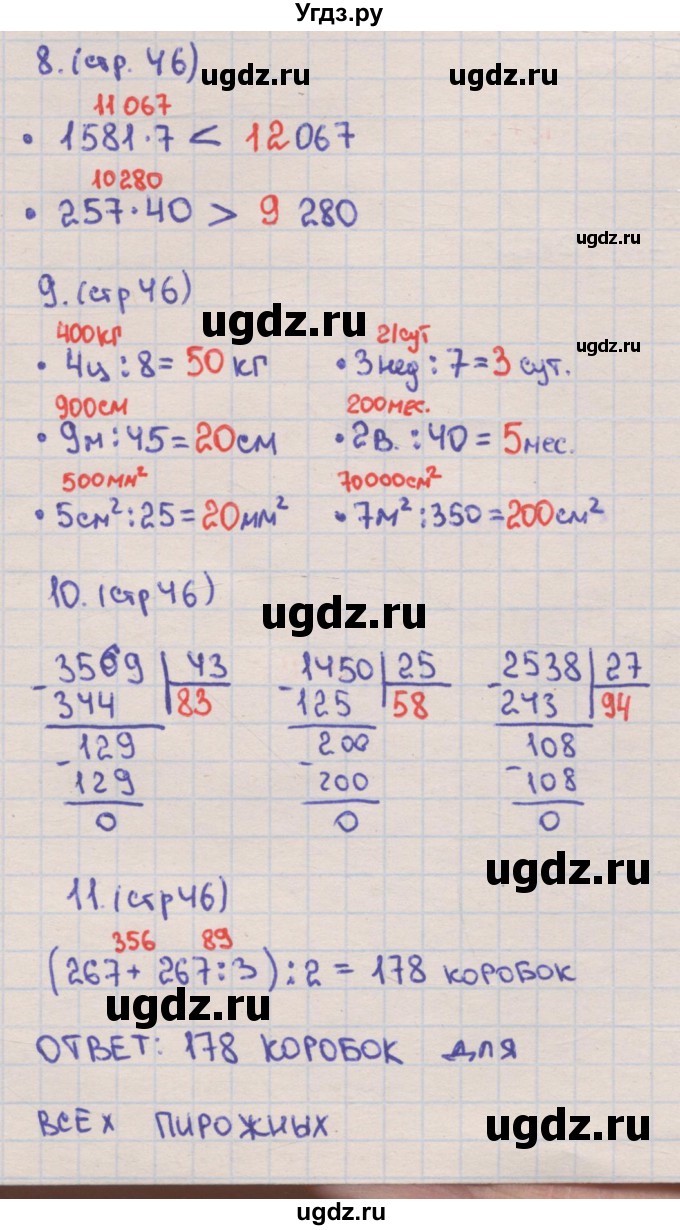 Угдз.ру
8. (стр. 46) ugdz.ru ugdz.ru
11 067
• 1581·7 < 12 067
10280
• 257·40 > 9 280
ugdz.ru
9. (стр 46)
ugdz.ru
400кг 21сут ugdz.ru
• 4ц : 8 = 50 кг • 3нед : 7 = 3 сут.
900см 200мес.
• 9м : 45 = 20см • 2в. : 40 = 5мес.
500мм² 70000см²
• 5см² : 25 = 20мм² • 7м² : 350 = 200см²
10. (стр 46)
ugdz.ru
- 3569 | 43 - 1450 | 25 - 2538 | 27
344 83 125 58 243 94
- 129 - 200 - 108
129 200 108
0 0 0
ugdz.ru
11. (стр 46)
356 89
(267 + 267 : 3) : 2 = 178 коробок
ugdz.ru
ОТВЕТ: 178 КОРОБОК ДЛЯ
ВСЕХ ПИРОЖНЫХ ugdz.ru
ugdz.ru